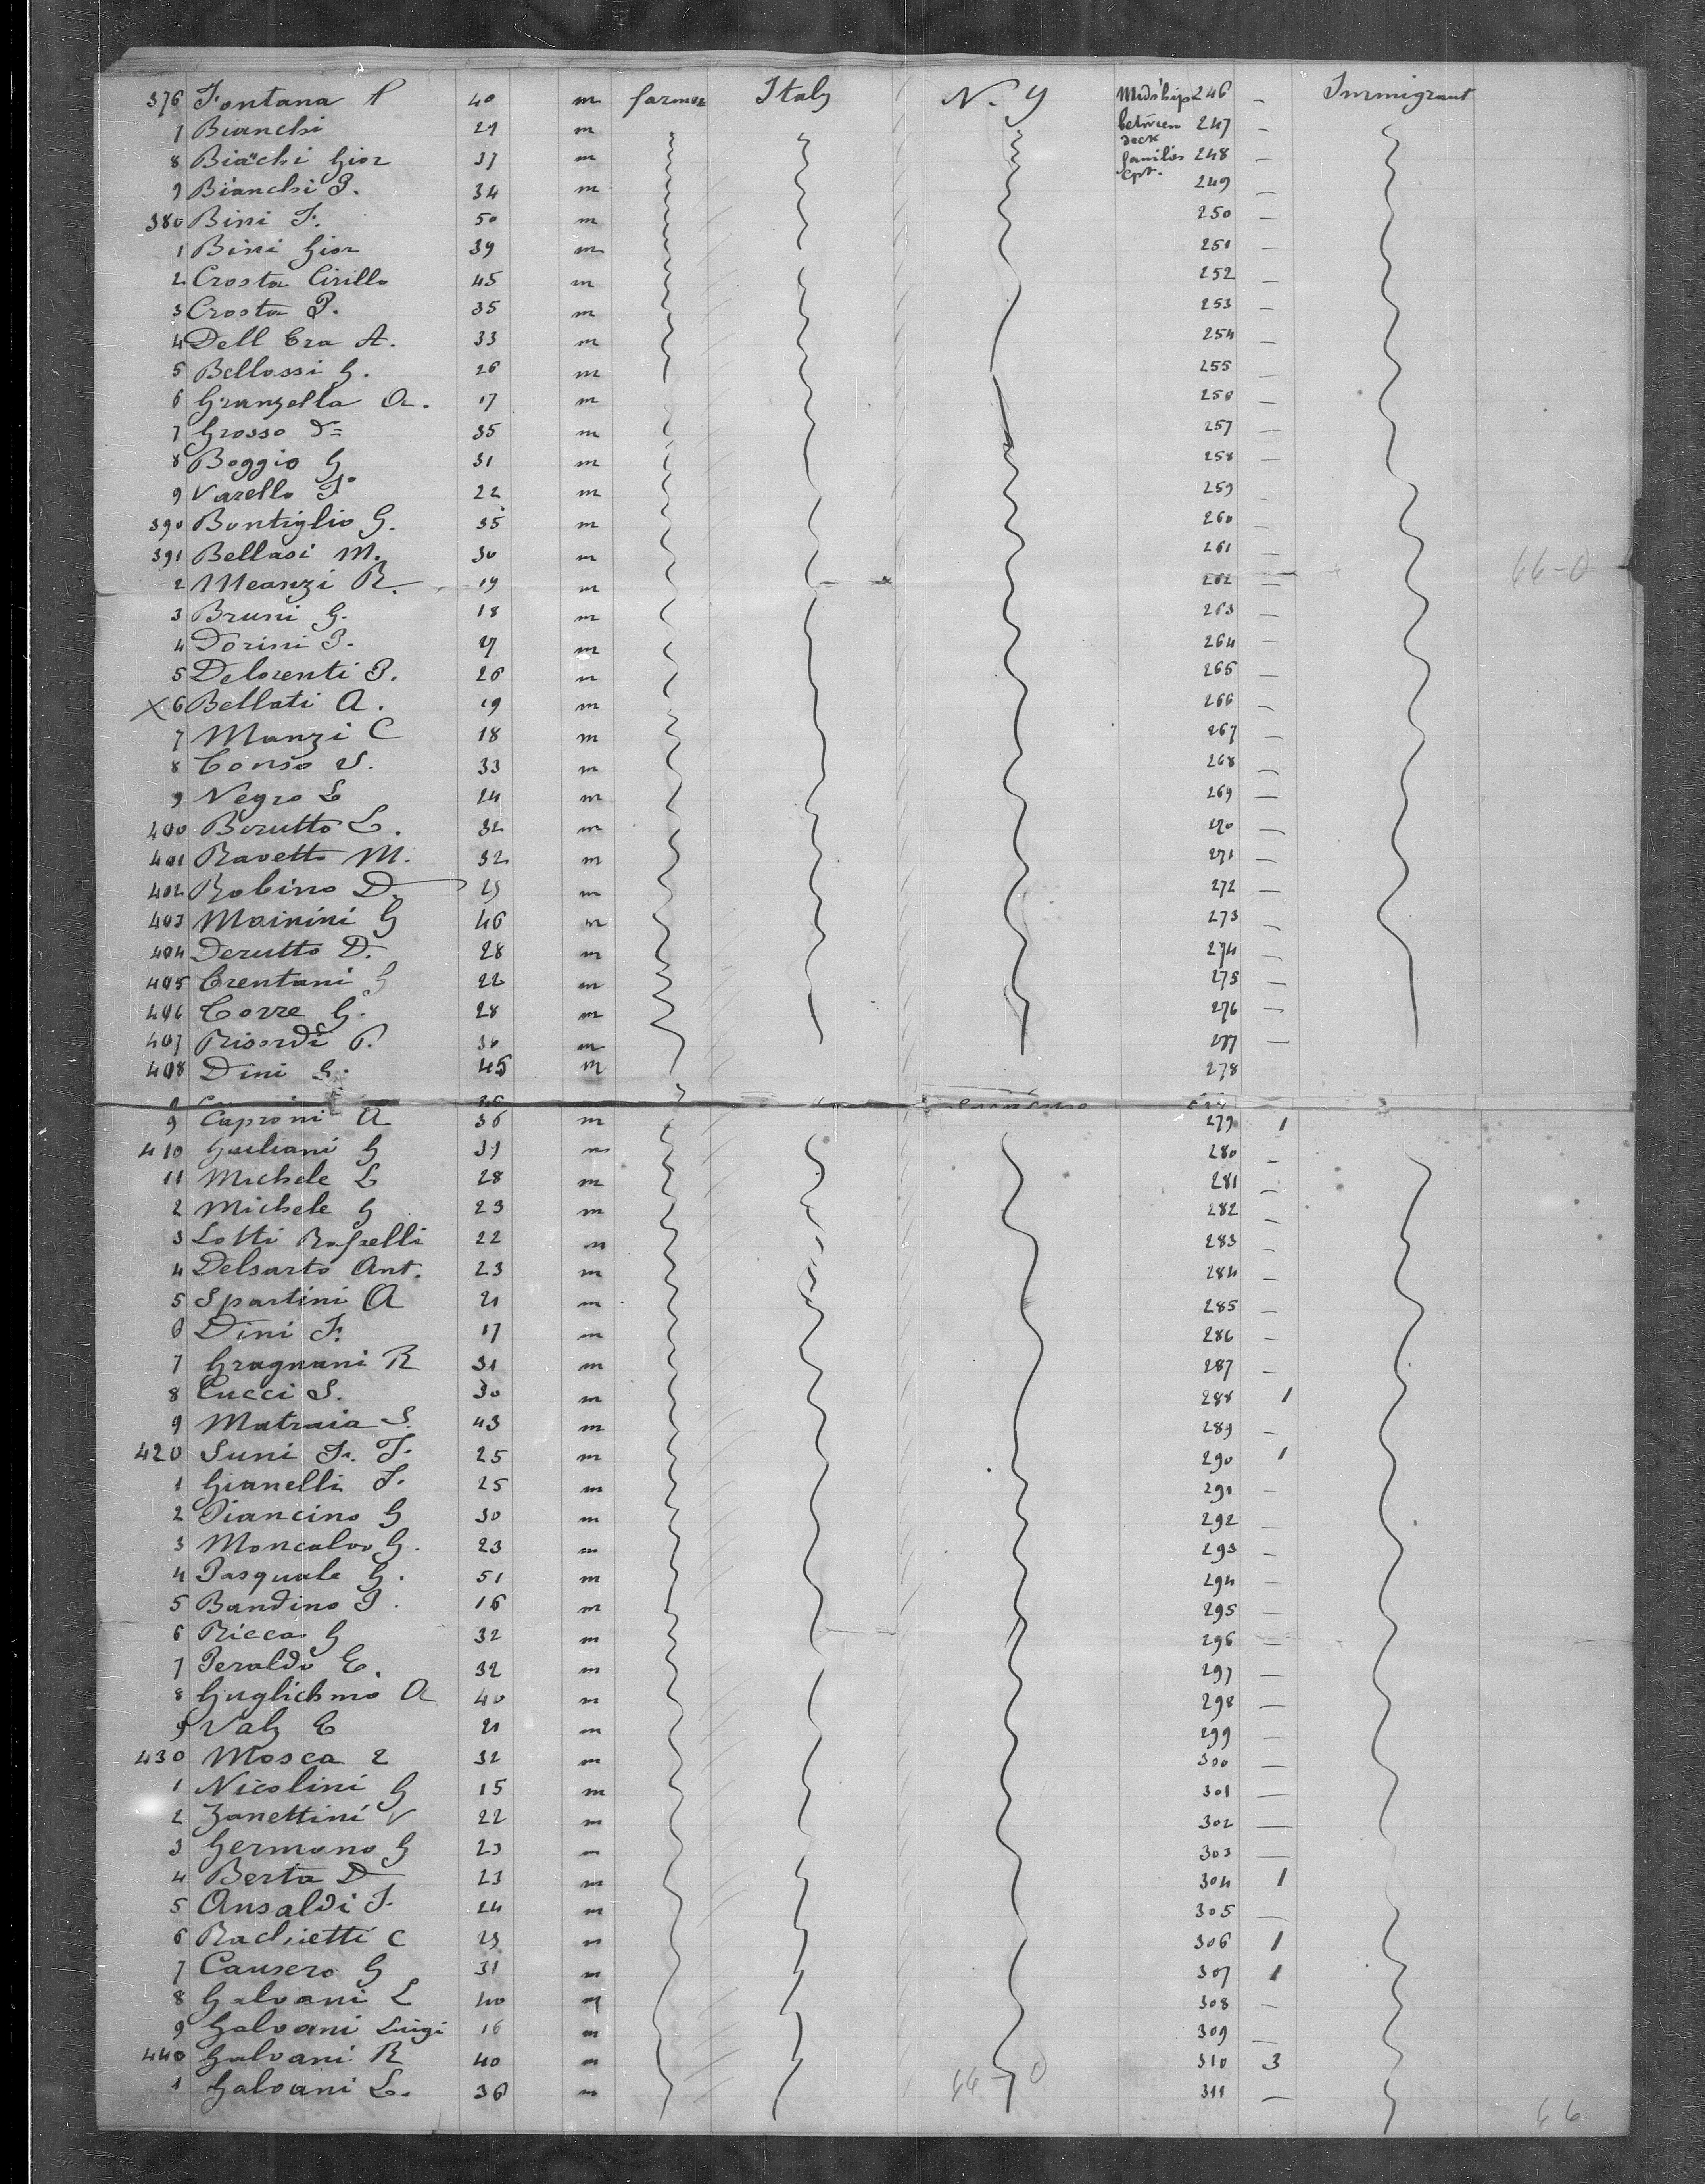 376 Fontana P 40 m farmer Italy N. Y Midship 246 – Immigrant
7 Bianchi 29 m between deck 247 –
8 Biachi Gior 37 m families 248 –
9 Bianchi P. 34 m cpt. 249 –
380 Bini F. 50 m 250 –
1 Bini Gior 39 m 251 –
2 Crosta Cirillo 45 m 252 –
3 Crosta P. 35 m 253 –
4 Dell Era A. 33 m 254 –
5 Bellossi G. 26 m 255 –
6 Granzella A. 17 m 256 –
7 Grosso 35 m 257 –
8 Boggio G 31 m 258 –
9 Varello F 22 m 259 –
390 Bontiglio G. 35 m 260 –
391 Bellasi M. 30 m 261 –
2 Meanzi R. 19 m 262 – 66-0
3 Bruni G. 18 m 263 –
4 Dorini P. 27 m 264 –
5 Delorenti P. 26 m 265 –
X 6 Bellati A. 19 m 266 –
7 Manzi C 18 m 267 –
8 Conso V. 33 m 268 –
9 Negro L 24 m 269 –
400 Borutto L. 32 m 270 –
401 Ravetto M. 32 m 271 –
402 Robino D. 25 m 272 –
403 Mainini G 46 m 273 –
404 Derutto D. 28 m 274 –
405 Crentani G 22 m 275 –
406 Corre G. 28 m 276 –
407 Risordi P. 36 m 277 –
408 Dini G. 45 m 278
9 Caproni A 36 m 279 1
410 Guiliani G 39 m 280 –
11 Michele L 28 m 281 –
2 Michele G 23 m 282 –
3 Lotti Raffelli 22 m 283 –
4 Delsarto Ant. 23 m 284 –
5 Spartini A 21 m 285 –
6 Dini F. 17 m 286 –
7 Gragnani R 31 m 287 –
8 Cucci S. 30 m 288 1
9 Matraia S. 43 m 289 –
420 Suni Fr. F. 25 m 290 1
1 Gianelli F. 25 m 291 –
2 Piancino G 30 m 292 –
3 Moncalvo G. 23 m 293 –
4 Pasquale G. 51 m 294 –
5 Bandino P. 16 m 295 –
6 Ricca G 32 m 296 –
7 Peraldo E. 32 m 297 –
8 Guglielmo A 40 m 298 –
9 Valz E 21 m 299 –
430 Mosca 2 32 m 300 –
1 Nicolini G 15 m 301 –
2 Zanettini V 22 m 302 –
3 Germano G 23 m 303 –
4 Berta D 23 m 304 1
5 Ansaldi F. 24 m 305 –
6 Rachietti C 25 m 306 1
7 Causero G 31 m 307 1
8 Galvani L 40 m 308 –
9 Galvani Luigi 16 m 309 –
440 Galvani R 40 m 310 3
1 Galvani L. 36 m 66-0 311 –
66